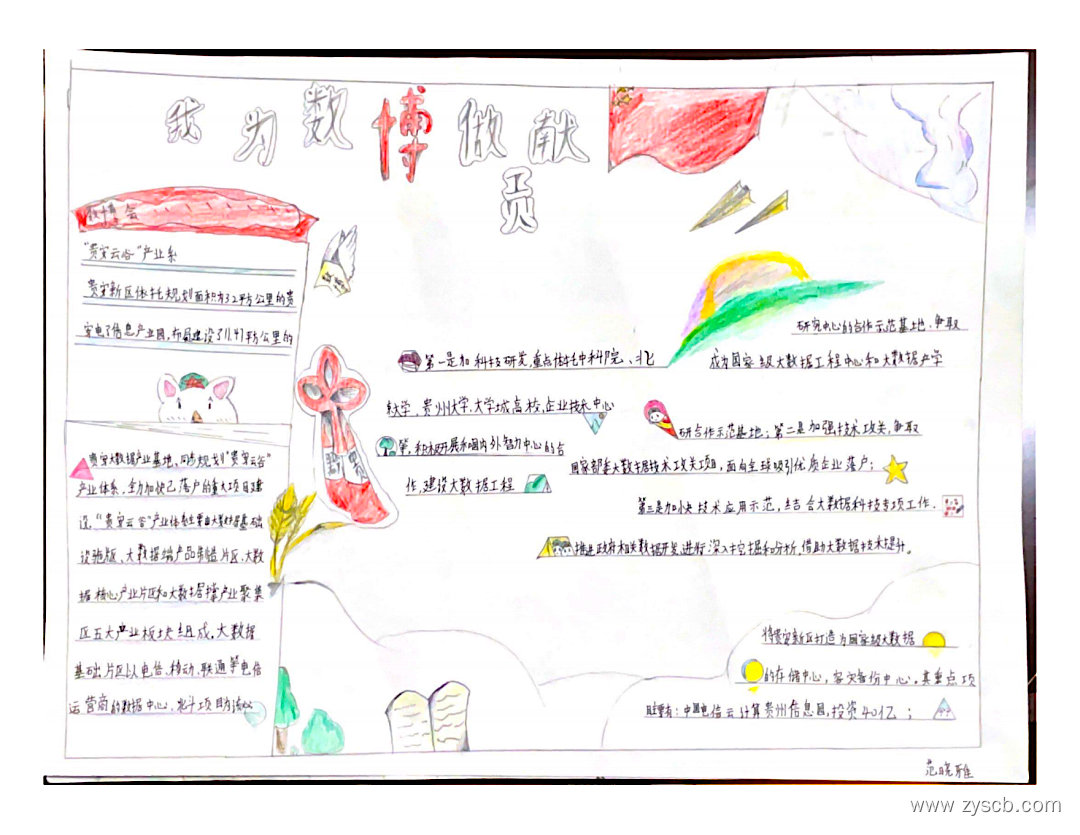 我为数博做献
贡
数博会
"贵安云谷"产业系
贵安新区依托规划面积为32平方公里的贵
安电子信息产业园,布局建设了11.47平方公里的
贵安大数据产业基地、同步规划"贵安云谷"
产业体系,全力加快已落户的重大项目建
设,"贵安云谷"产业体系主要由大数据基础
设施版、大数据端产品制造片区、大数
据核心产业片区和大数据产业聚集
区五大产业板块组成,大数据
基础片区以电信、移动、联通等电信
运营商的数据中心、北斗项目为核心
第一是加科技研发,重点依托中科院、北
京大学、贵州大学、大学城高校,企业技术中心
等,积极开展和国内外智力中心的合
作,建设大数据工程
研究中心的合作示范基地、争取
成为国家级大数据工程中心和大数据产学
研合作示范基地;第二是加强技术攻关,争取
国家部委大数据技术攻关项目,面向全球吸引优质企业落户;
第三是加快技术应用示范,结合大数据科技专项工作.
推进政府相关数据开发,进行深入挖掘和分析,借助大数据技术提升。
将贵安新区打造为国家级大数据
的存储中心,容灾备份中心,其重点项
目主要有:中国电信云计算贵州信息园,投资40亿;
范晓雅
www zyscb.com